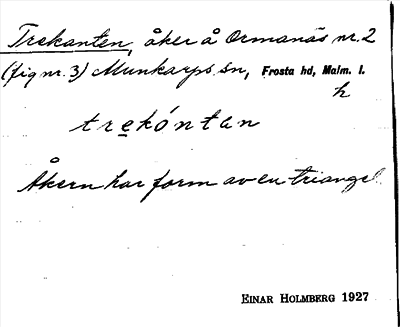 Trekanten, åker å Ormanäs nr. 2
(fig nr. 3) Munkarps sn, Frosta hd, Malm. l.
h
trękóntan
Åkern har form av en triangel.
EINAR HOLMBERG 1927